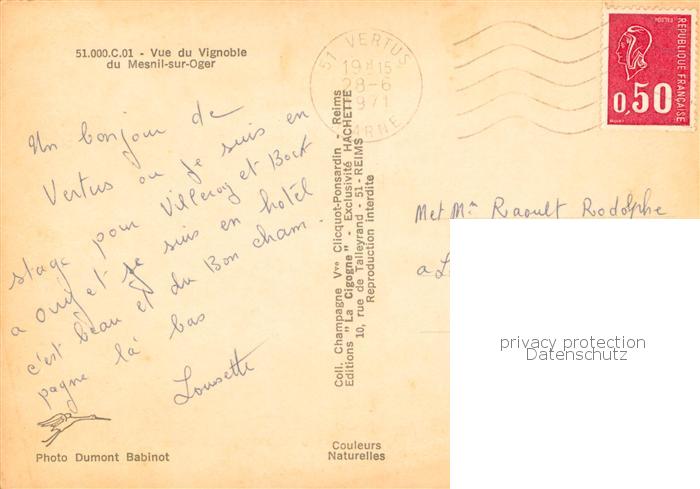 51.000.C.01 - Vue du Vignoble
du Mesnil-sur-Oger
Un bonjour de
Vertus ou je suis en
stage pour Villeroy et Boch
a Oiry et je suis en hotel
c'est beau et du Bon cham-
pagne là bas
Lousette
Photo Dumont Babinot
Coll. Champagne Vve Clicquot-Ponsardin - Reims
Editions "La Cigogne" - Exclusivité HACHETTE
10, rue de Talleyrand - 51-REIMS
Reproduction interdite
Couleurs
Naturelles
51 VERTUS
19H15
28-6
1971
MARNE
RÉPUBLIQUE FRANÇAISE
0,50
Met Mm Raoult Rodolphe
a
privacy protection
Datenschutz